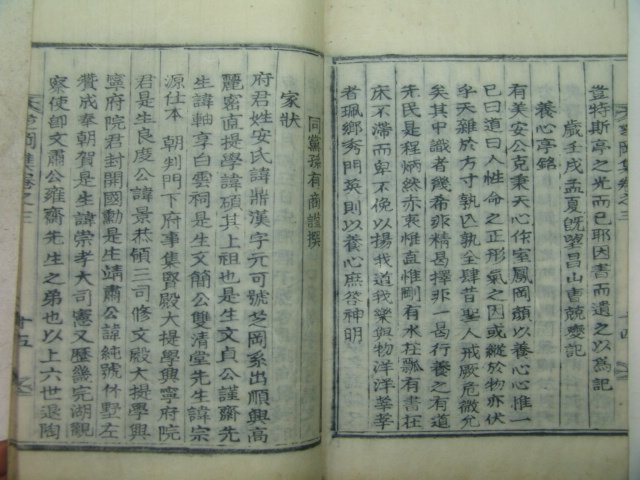 豈特斯亭之光而已耶因書而遺之以為記
歲壬戌孟夏旣望昌山曺競燮記
養心亭銘
有美安公克秉天心作室鳳岡顔以養心心惟一
已曰道曰人性命之正形氣之因或縱於物亦伏
乎天雖於方寸孰匹孰全肆昔聖人戒厥危微允
矣其中識者幾希非精曷擇非一曷行養之有道
先民是程炳然赤衷惟直惟剛有水在瓢有書在
床不滯而卑不倨以揚我道我樂與物洋洋莘莘
者珮鄕秀門英則以養心庶答神明
同黨孫有商謹撰
家狀
府君姓安氏諱鼎漢字元可號芝岡系出順興高
麗密直提學諱碩其上祖也是生文貞公謹齋先
生諱軸享白雲祠是生文簡公雙淸堂先生諱宗
源仕本朝判門下府事集賢殿大提學興寧府院
君是生良度公諱景恭領三司修文殿大提學興
寧府院君封開國勳是生靖肅公諱純號休墅左
贊成奉朝賀是生諱崇孝大司憲又歷畿完湖觀
察使卽文肅公雍齋先生之弟也以上六世退陶
芝岡集卷之三
十四
芝岡集卷之三
十五